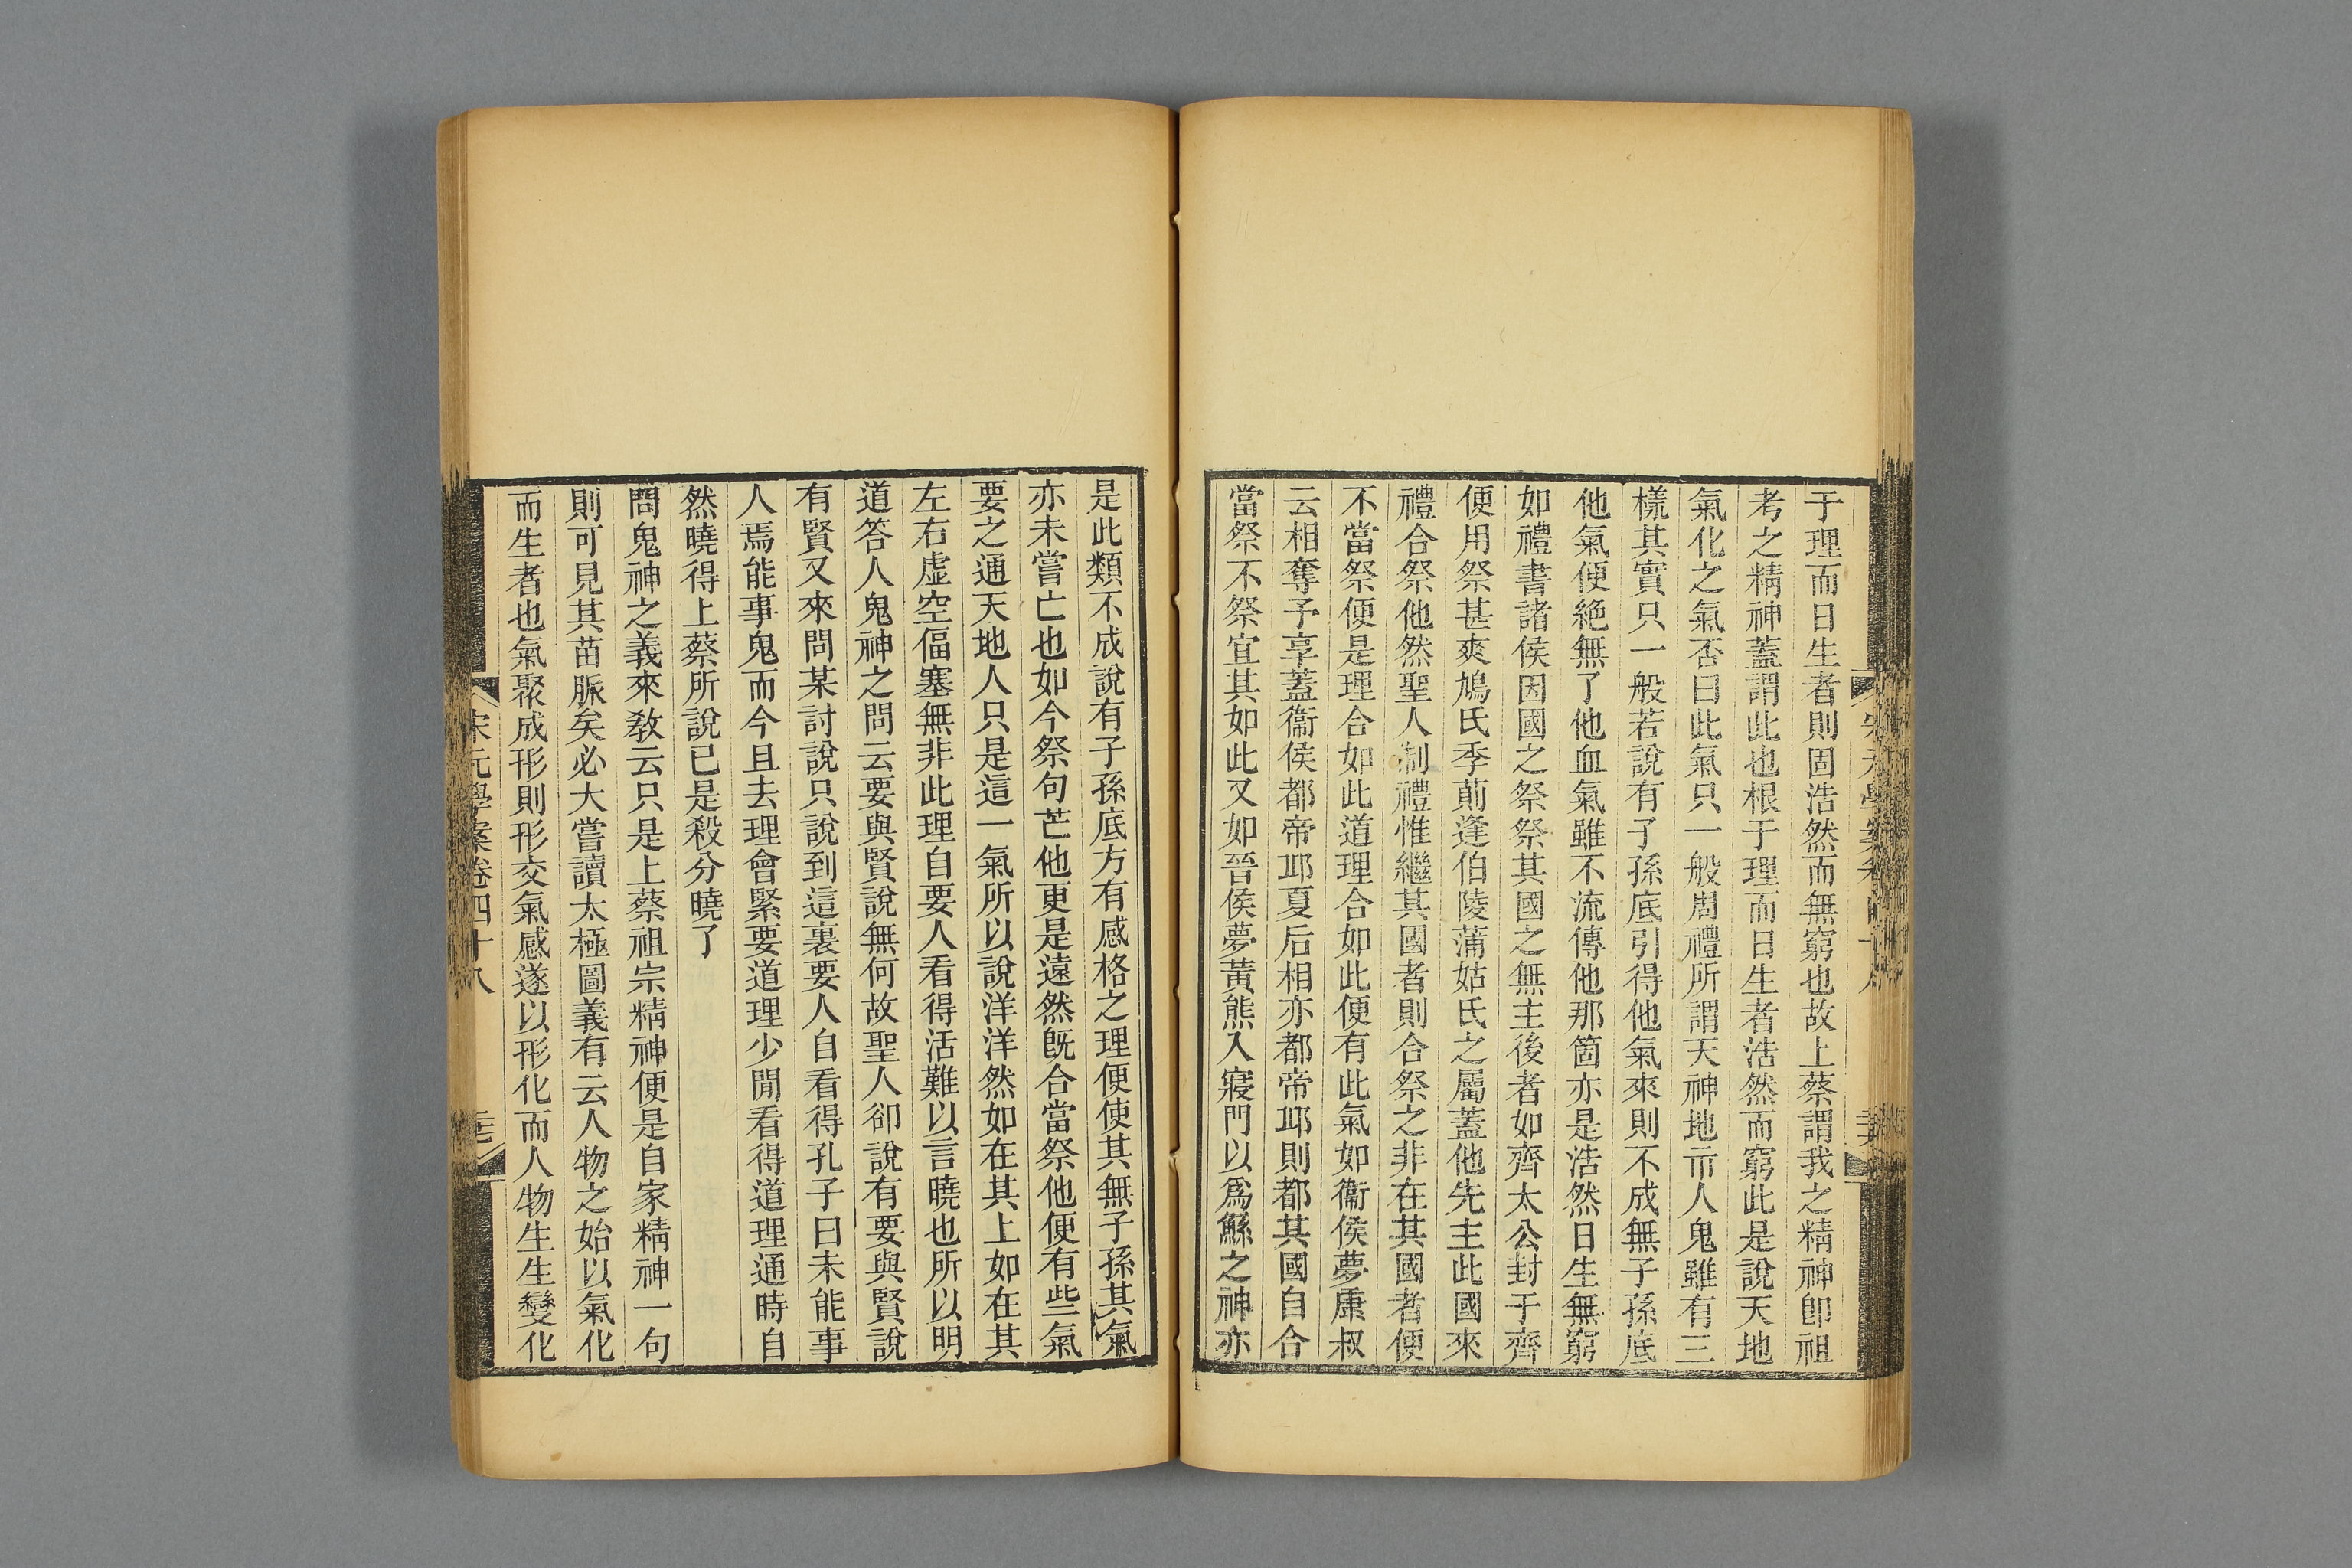 于理而日生者則固浩然而無窮也故上蔡謂我之精神卽祖
考之精神蓋謂此也根于理而日生者浩然而窮此是說天地
氣化之氣否曰此氣只一般周禮所謂天神地示人鬼雖有三
樣其實只一般若說有子孫底引得他氣來則不成無子孫底
他氣便絕無了他血氣雖不流傳他那箇亦是浩然日生無窮
如禮書諸侯因國之祭祭其國之無主後者如齊太公封于齊
便用祭甚爽鳩氏季萴逢伯陵蒲姑氏之屬蓋他先主此國來
禮合祭他然聖人制禮惟繼其國者則合祭之非在其國者便
不當祭便是理合如此道理合如此便有此氣如衞侯夢康叔
云相奪予享蓋衞侯都帝邱夏后相亦都帝邱則都其國自合
當祭不祭宜其如此又如晉侯夢黃熊入寢門以爲鯀之神亦
是此類不成說有子孫底方有感格之理便使其無子孫其氣
亦未嘗亡也如今祭句芒他更是遠然既合當祭他便有些氣
要之通天地人只是這一氣所以說洋洋然如在其上如在其
左右虛空偪塞無非此理自要人看得活難以言曉也所以明
道答人鬼神之問云要與賢說無何故聖人卻說有要與賢說
有賢又來問某討說只說到這裏要人自看得孔子曰未能事
人焉能事鬼而今且去理會緊要道理少閒看得道理通時自
然曉得上蔡所說已是殺分曉了
問鬼神之義來敎云只是上蔡祖宗精神便是自家精神一句
則可見其苗脈矣必大嘗讀太極圖義有云人物之始以氣化
而生者也氣聚成形則形交氣感遂以形化而人物生生變化
宋元學案卷四十八